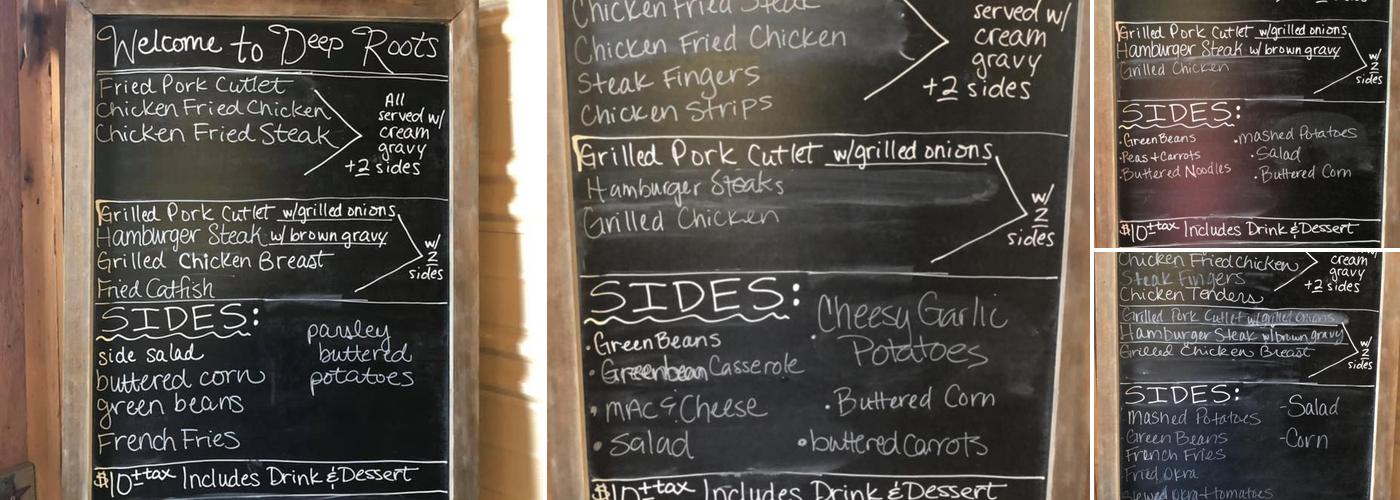 Welcome to Deep Roots
Fried Pork Cutlet
Chicken Fried Chicken
Chicken Fried Steak
All
served w/
cream
gravy
+2 sides
Grilled Pork Cutlet w/grilled onions
Hamburger Steak w/ brown gravy
Grilled Chicken Breast
Fried Catfish
w/
2
sides
SIDES:
side salad
buttered corn
green beans
French Fries
parsley
buttered
potatoes
$10+tax Includes Drink & Dessert
Chicken Fried Steak
Chicken Fried Chicken
Steak Fingers
Chicken Strips
served w/
cream
gravy
+2 sides
Grilled Pork Cutlet w/grilled onions
Hamburger Steaks
Grilled Chicken
w/
2
sides
SIDES:
·Green Beans
·Greenbean Casserole
·Mac & Cheese
·Salad
·Cheesy Garlic
Potatoes
·Buttered Corn
·buttered carrots
$10+tax Includes Drink & Dessert
Grilled Pork Cutlet w/grilled onions
Hamburger Steak w/ brown gravy
Grilled Chicken
w/
2
sides
SIDES:
·Green Beans
·Peas + Carrots
·Buttered Noodles
·mashed Potatoes
·Salad
·Buttered Corn
$10+tax Includes Drink & Dessert
Chicken Fried Chicken
Steak Fingers
Chicken Tenders
cream
gravy
+2 sides
Grilled Pork Cutlet w/grilled onions
Hamburger Steak w/ brown gravy
Grilled Chicken Breast
w/
2
sides
SIDES:
-Mashed Potatoes
-Green Beans
-French Fries
-Fried Okra
-Stewed Okra+Tomatoes
-Salad
-Corn